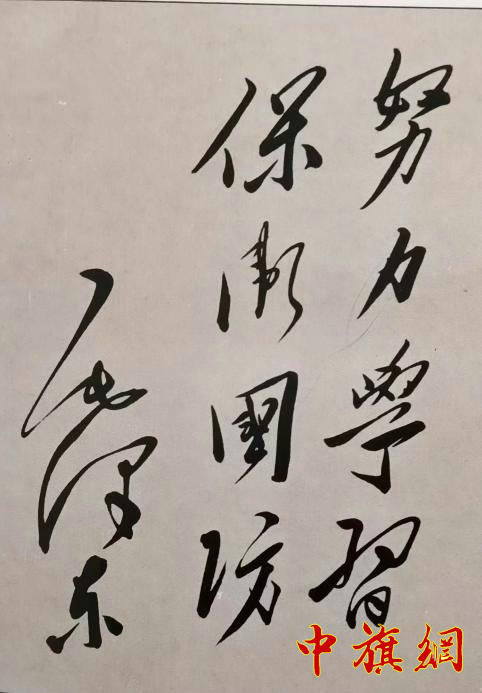 努力學習
保衛國防
毛澤东
中旗網